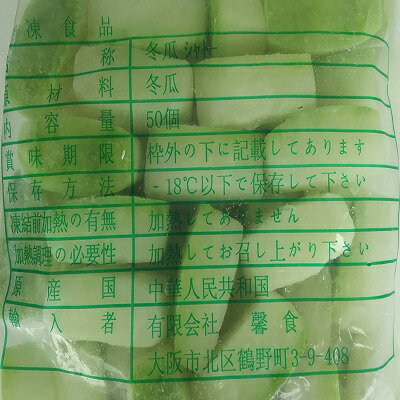 凍食品
称 冬瓜 シャトー
原材料 冬瓜
内容量 50個
賞味期限 枠外の下に記載してあります
保存方法 -18℃以下で保存して下さい
凍結前加熱の有無 加熱してありません
加熱調理の必要性 加熱してお召し上がり下さい
原産国 中華人民共和国
輸入者 有限会社 馨食
大阪市北区鶴野町3-9-408